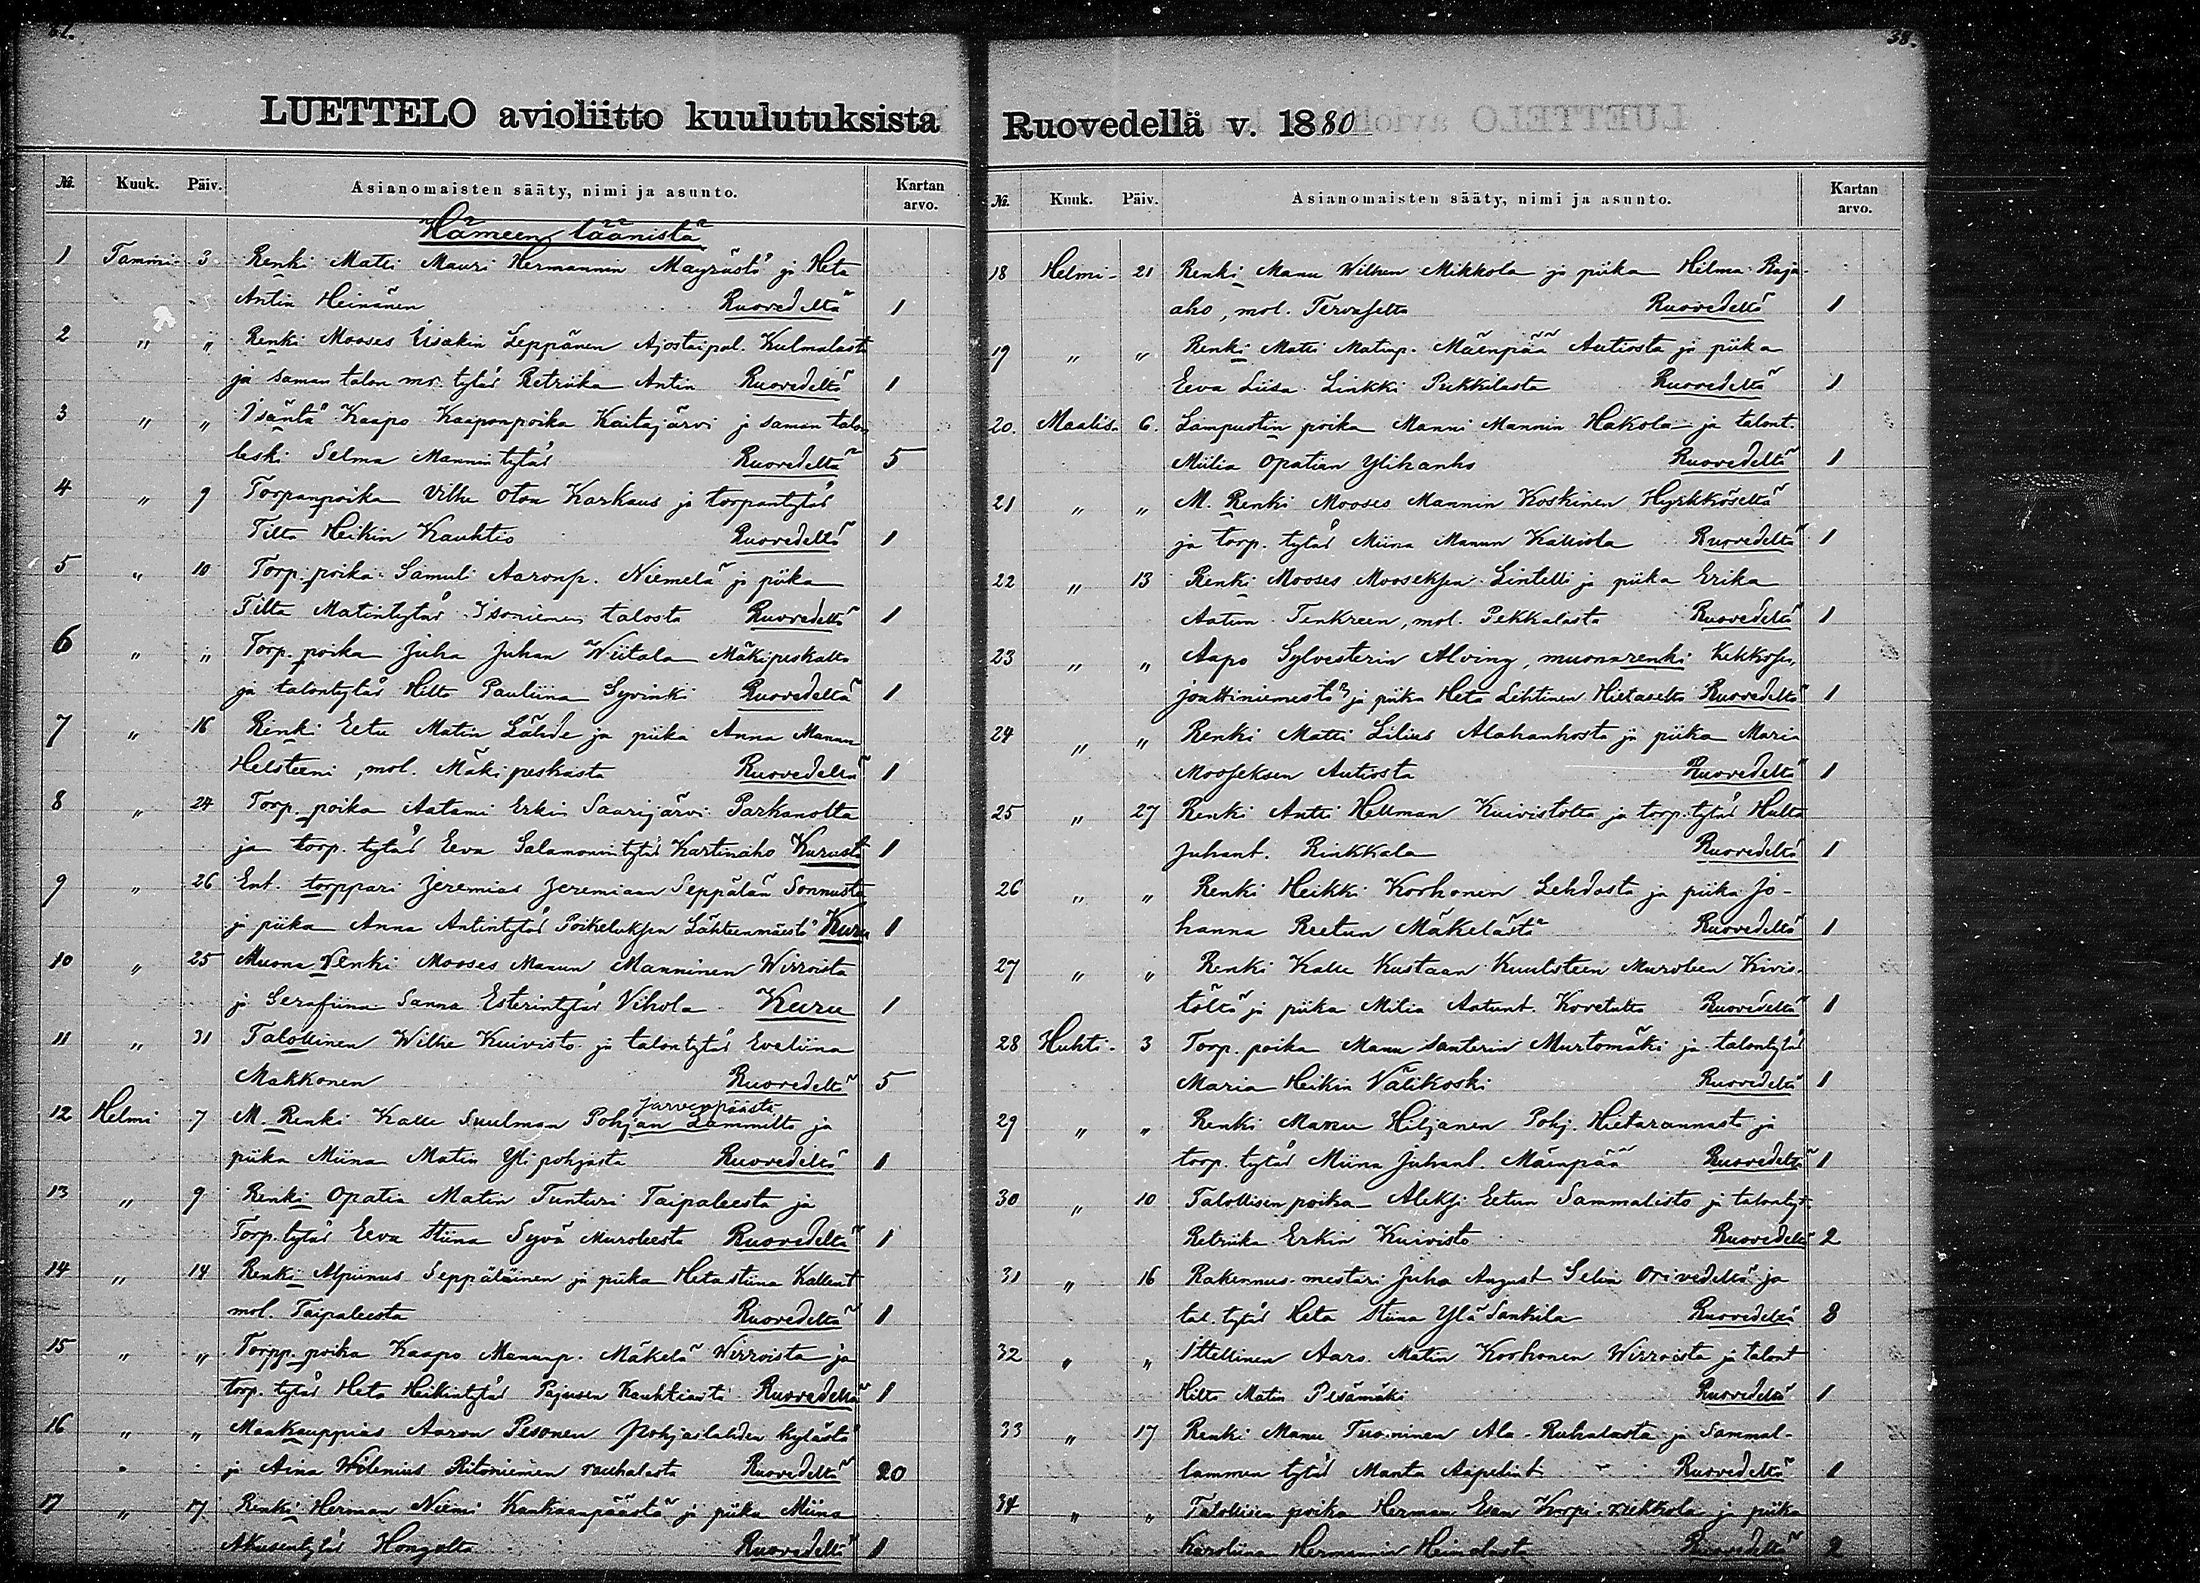 LUETTELO avioliitto kuulutuksista
№. Kuuk. Päiv. Asianomaisten sääty, nimi ja asunto. Kartan arvo.
Hämeen läänistä
1 Tammi- 3 Renki Matti Mauri Hermannin Mäyrästö ja Heta
Antin Heinänen Ruovedeltä 1
2 " " Renki Mooses Iisakin Leppänen Ajostaipal. Kulmalasta
ja saman talon tytär Retriika Antin Ruovedeltä 1
3 " " Isäntä Kaapo Kaaponpoika Kaitajärvi ja saman talon
leski Selma Mannintytär Ruovedeltä 5
4 " 9 Torpanpoika Vilhe Oton Karkaus ja torpantytär
Tilta Heikin Kauhtio Ruovedeltä 1
5 " 10 Torp. poika Samuli Aaronp. Niemelä ja piika
Tilta Matintytär Isoniemen talosta Ruovedeltä 1
6 " " Torp. poika Juha Juhan Wiitala Mäkipeskalta
ja talontytär Hilta Pauliina Syvinki Ruovedeltä 1
7 " 16 Renki Eetu Matin Lähde ja piika Anna Manun
Helsteeni, mol. Mäkipeskasta Ruovedeltä 1
8 " 24 Torp. poika Aatami Erkin Saarijärvi Parkanolta
ja torp. tytär Eeva Salamonintytär Kartinaho Kurusta 1
9 " 26 Ent. torppari Jeremias Jeremiaan Seppälän Sonnusta
ja piika Anna Antintytär Poikeluksen Lähteenmäestä Kuru 1
10 " 25 Muona Renki Mooses Manun Manninen Wirroista
ja Serafiina Sanna Esterintytär Vihola Kuru 1
11 " 31 Talollinen Wilhe Kuivisto ja talontytär Eveliina
Makkonen Ruovedeltä 5
Järvenpäästä
12 Helmi 7 M. Renki Kalle Suulman Pohjan Lammilta ja
piika Miina Matin Ylipohjasta Ruovedeltä 1
13 " 9 Renki Opatia Matin Tunturi Taipaleesta ja
Torp. tytär Eeva Stiina Syvä Muroleesta Ruovedeltä 1
14 " 14 Renki Alpiinus Seppäläinen ja piika Hetastiina Kallent
mol. Taipaleesta Ruovedeltä 1
15 " " Torpp. poika Kaapo Manunp. Mäkelä Wirroista ja
torp. tytär Heta Heikintytär Pajusen Kauhtiosta Ruovedeltä 1
16 " " Maakauppias Aaron Pesonen Pohjaslahden kylästä
ja Aina Wilenius Ritoniemen rauhalasta Ruovedeltä 20
17 " 17 Renki Herman Niemi Kankaanpäästä ja piika Miina
Akusentytär Hongolta Ruovedeltä 1
38.
Ruovedellä v. 1880
№. Kuuk. Päiv. Asianomaisten sääty, nimi ja asunto. Kartan arvo.
18 Helmi- 21 Renki Manu Wilhun Mikkola ja piika Hilma Raja-
aho, mol. Ruovedeltä 1
19 " " Renki Matti Matinp. Mäenpää Autiosta ja piika
Eeva Liisa Linkki Pukkilasta Ruovedeltä 1
20. Maalis- 6. Lampuotin poika Manni Mannin Hakola ja talont.
Miilia Opatian Ylihanko Ruovedeltä 1
21 " " M. Renki Mooses Mannin Koskinen Hyrkköseltä
ja torp. tytär Miina Manun Kalliola Ruovedeltä 1
22 " 13 Renki Mooses Mooseksen Lintelli ja piika Erika
Aatun Tenkreen, mol. Pekkalasta Ruovedeltä 1
23 " " Aapo Sylvesterin Alving, muonarenki
ja piika Heta Lehtinen Hietaselta Ruovedeltä 1
24 " " Renki Matti Lilius Alahankosta ja piika Maria
Mooseksen Autiosta Ruovedeltä 1
25 " 27 Renki Antti Hellman Kuivistolta ja torp. tytär Hulta
Juhant. Rinkkala Ruovedeltä 1
26 " " Renki Heikki Korhonen Lehdosta ja piika Jo-
hanna Reetun Mäkelästä Ruovedeltä 1
27 " " Renki Kalle Kustaan Kuulsteen Muroleen Kivis-
töltä ja piika Milia Aatunt. Ruovedeltä 1
28 Huhti- 3 Torp. poika Manu Santerin Murtomäki ja talontytär
Maria Heikin Välikoski Ruovedeltä 1
29 " " Renki Manu Hiljanen Pohj. Hietarannasta ja
torp. tytär Miina Juhant. Mäenpää Ruovedeltä 1
30 " 10 Talollisen poika Aleksi Eetun Sammalisto ja talontyt.
Retriika Erkin Kuivisto Ruovedeltä 2
31 " 16 Rakennus-mestari Juho August Selin Orivedeltä ja
tal. tytär Heta Stiina Ylä Sankila Ruovedeltä 8
32 " " Ittellinen Aaro Matin Korhonen Wirroista ja talont
Hilta Matin Pesämäki Ruovedeltä 1
33 " 17 Renki Manu Tuominen Ala-Ruhalasta ja Sammal-
lammen tytär Manta Aapelint Ruovedeltä 1
34 " " Talollisen poika Herman Esan Korpi- ja piika
Karoliina Hermannin Heinolasta Ruovedeltä 2